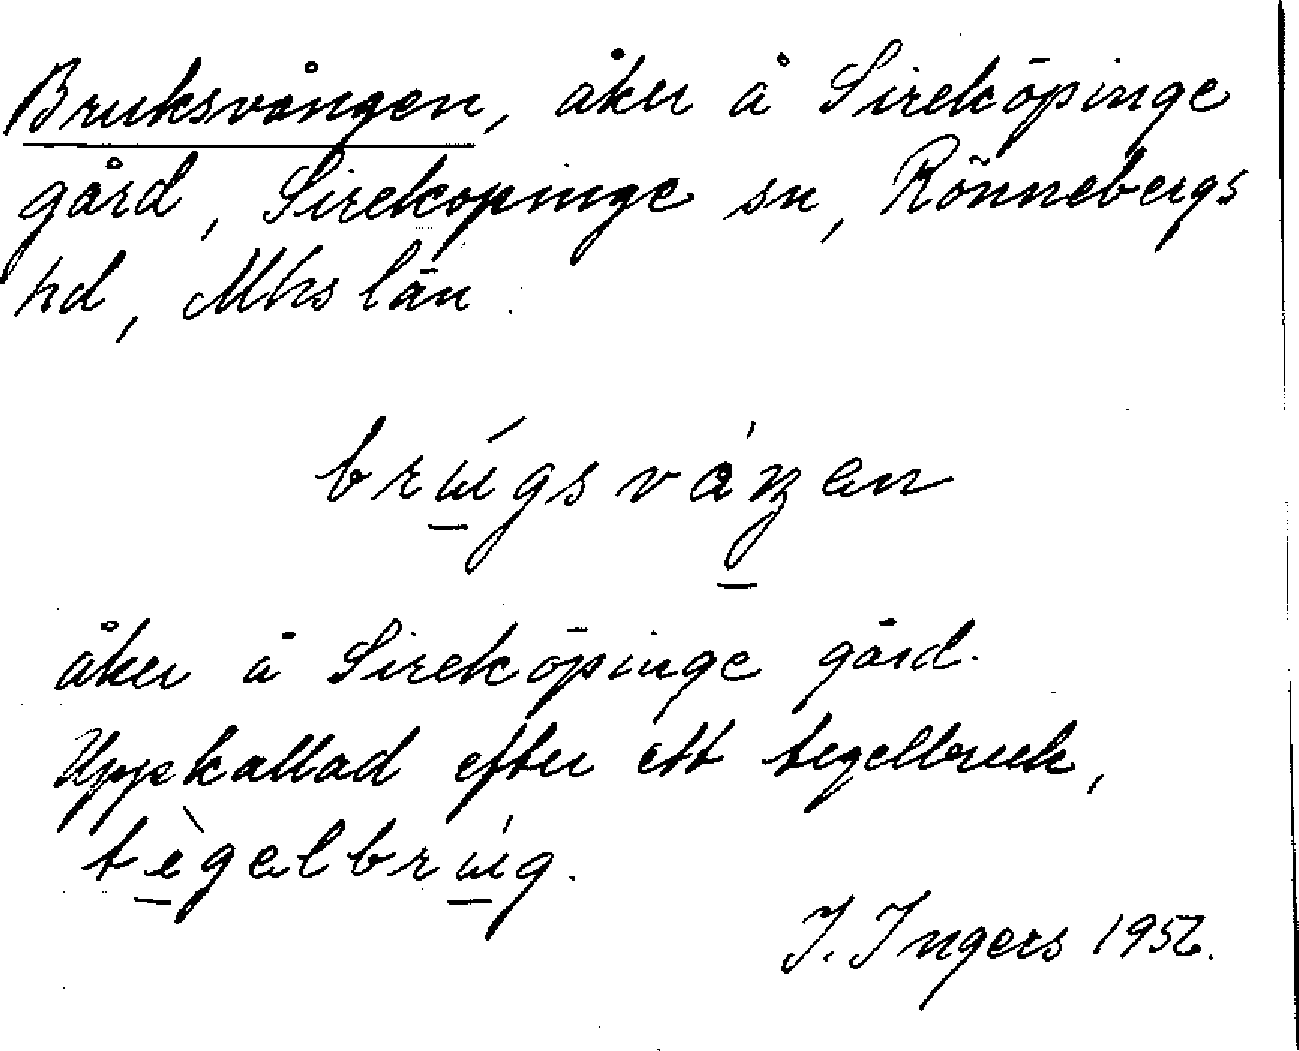 Bruksvången, åker å Sireköpinge
gård, Sireköpinge sn, Rönnebergs
hd, Mhs län.
brúgsváŋen
åker å Sireköpinge gård.
Uppkallad efter ett tegelbruk,
tègelbrúg.
I. Ingers 1956.